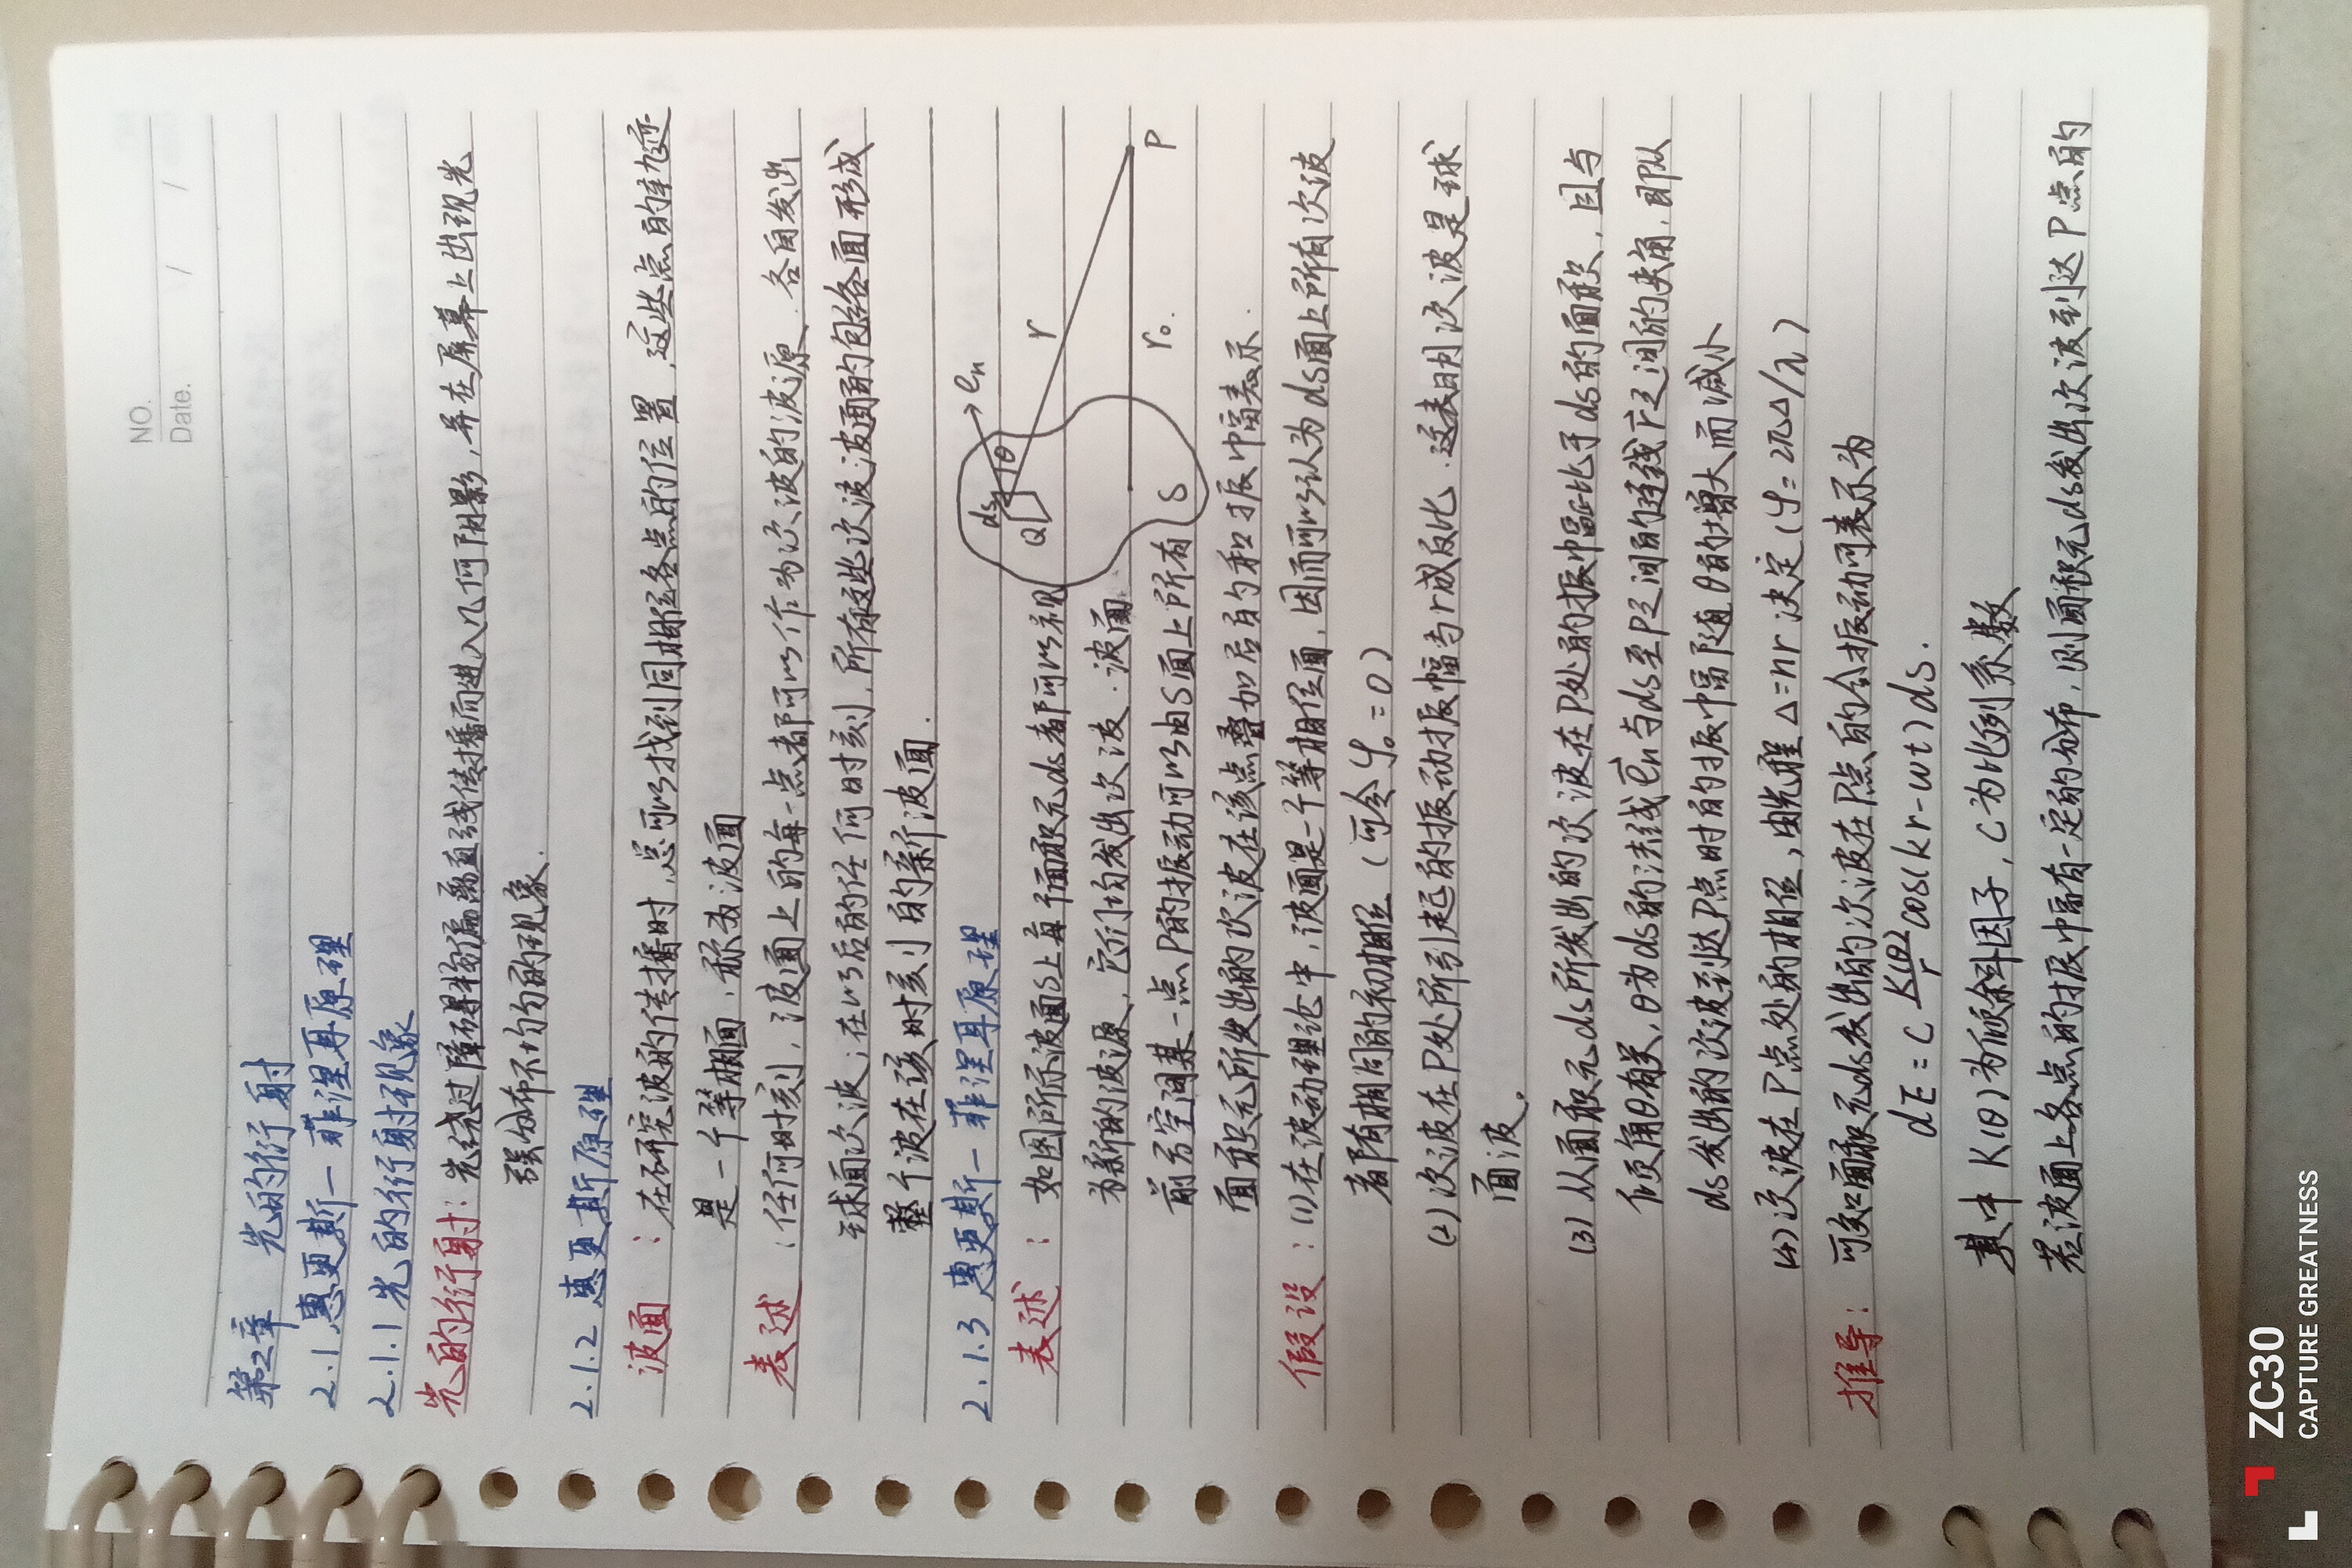 NO.
Date. / /
第2章 光的衍射
2.1 惠更斯—菲涅耳原理
2.1.1 光的衍射现象
光的衍射：光绕过障碍物偏离直线传播而进入几何阴影，并在屏幕上出现光
强分布不均匀的现象.
2.1.2 惠更斯原理
波面：在研究波的传播时，总可以找到同相位各点的位置，这些点的轨迹
是一个等相面，称为波面
表述：任何时刻，波面上的每一点都可以作为次波的波源，各自发出
球面次波；在以后的任何时刻，所有这些次波波面的包络面形成
整个波在该时刻的新波面.
2.1.3 惠更斯—菲涅耳原理
表述：如图所示波面S上每个面积元ds都可以视
为新的波源，它们均发出次波.波面
前方空间某一点P的振动可以由S面上所有
面积元所发出的次波在该点叠加后的和振幅表示.
ds
Q
θ
en
r
r₀
S
P
假设：(1)在波动理论中，波面是一个等相位面，因而可以认为ds面上所有次波
都有相同的初相位（可令φ₀=0）
(2)次波在P处所引起的振动振幅与r成反比.这表明次波是球
面波。
(3)从面积元ds所发出的次波在P处的振幅正比于ds的面积，且与
倾角θ有关，θ为ds的法线e⃗n与ds至P之间的连线r⃗之间的夹角，即从
ds发出的次波到达P点时的振幅随θ的增大而减小
(4)次波在P点处的相位，由光程Δ=nr决定(φ=2πΔ/λ)
推导：可知面积元ds发出的次波在P点的合振动可表示为
dE = C K(θ)/r cos(kr-wt)ds.
其中K(θ)为倾斜因子，C为比例系数
若波面上各点的振幅有一定的分布，则面积元ds发出次波到达P点的
ZC30
CAPTURE GREATNESS